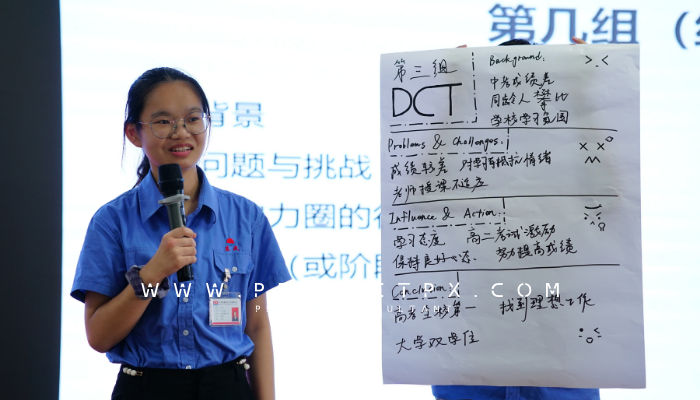 第几组（
背景
问题与挑战
力圈的
（或阶段
第三组
DCT
Background.
中考成绩差
同龄人攀比
学校学习氛围
Problems & Challenges.
成绩较差 对学习有抵抗情绪
老师授课不适应
Influence & Action.
学习态度 高二考试激励
保持良好心态. 努力提高成绩
Conclusion
高考全校第一 找到理想工作
大学双学位